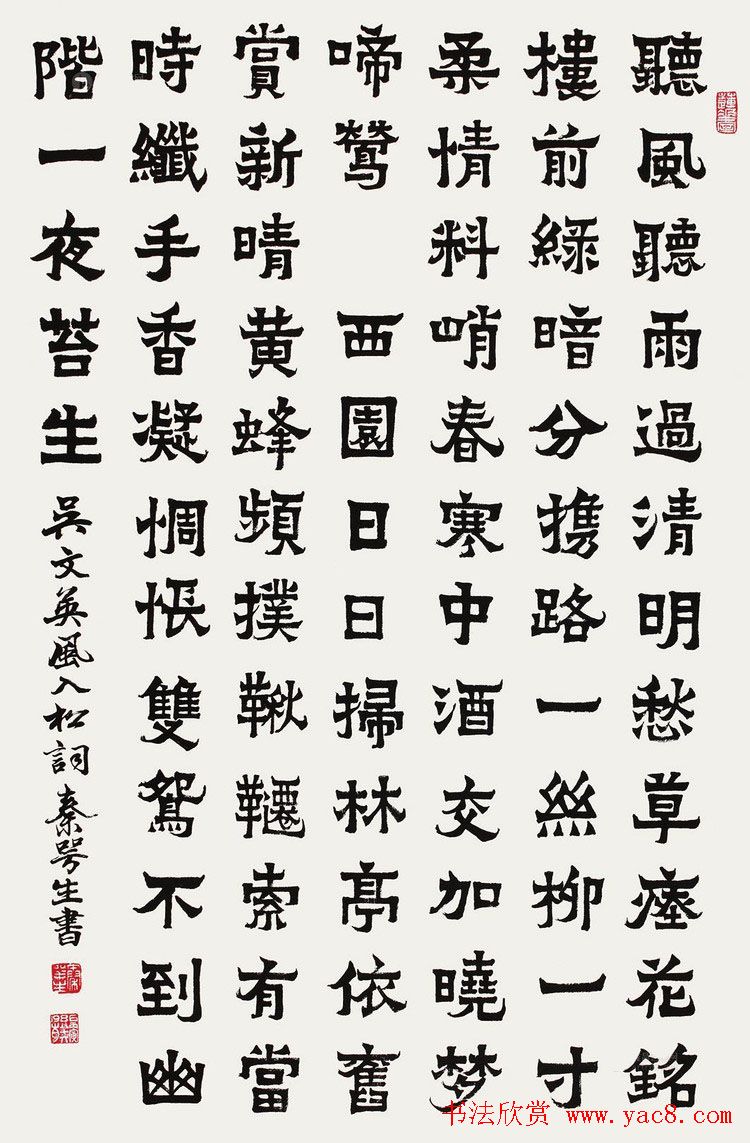 聽風聽雨過清明愁草瘞花銘
樓前綠暗分携路一絲柳一寸
柔情料峭春寒中酒交加曉梦
啼鶯 西園日日掃林亭依舊
賞新晴黄蜂頻撲鞦韆索有當
時纖手香凝惆悵雙鴛不到幽
階一夜苔生
吳文英風入松詞秦咢生書
书法欣赏 www.yac8.com